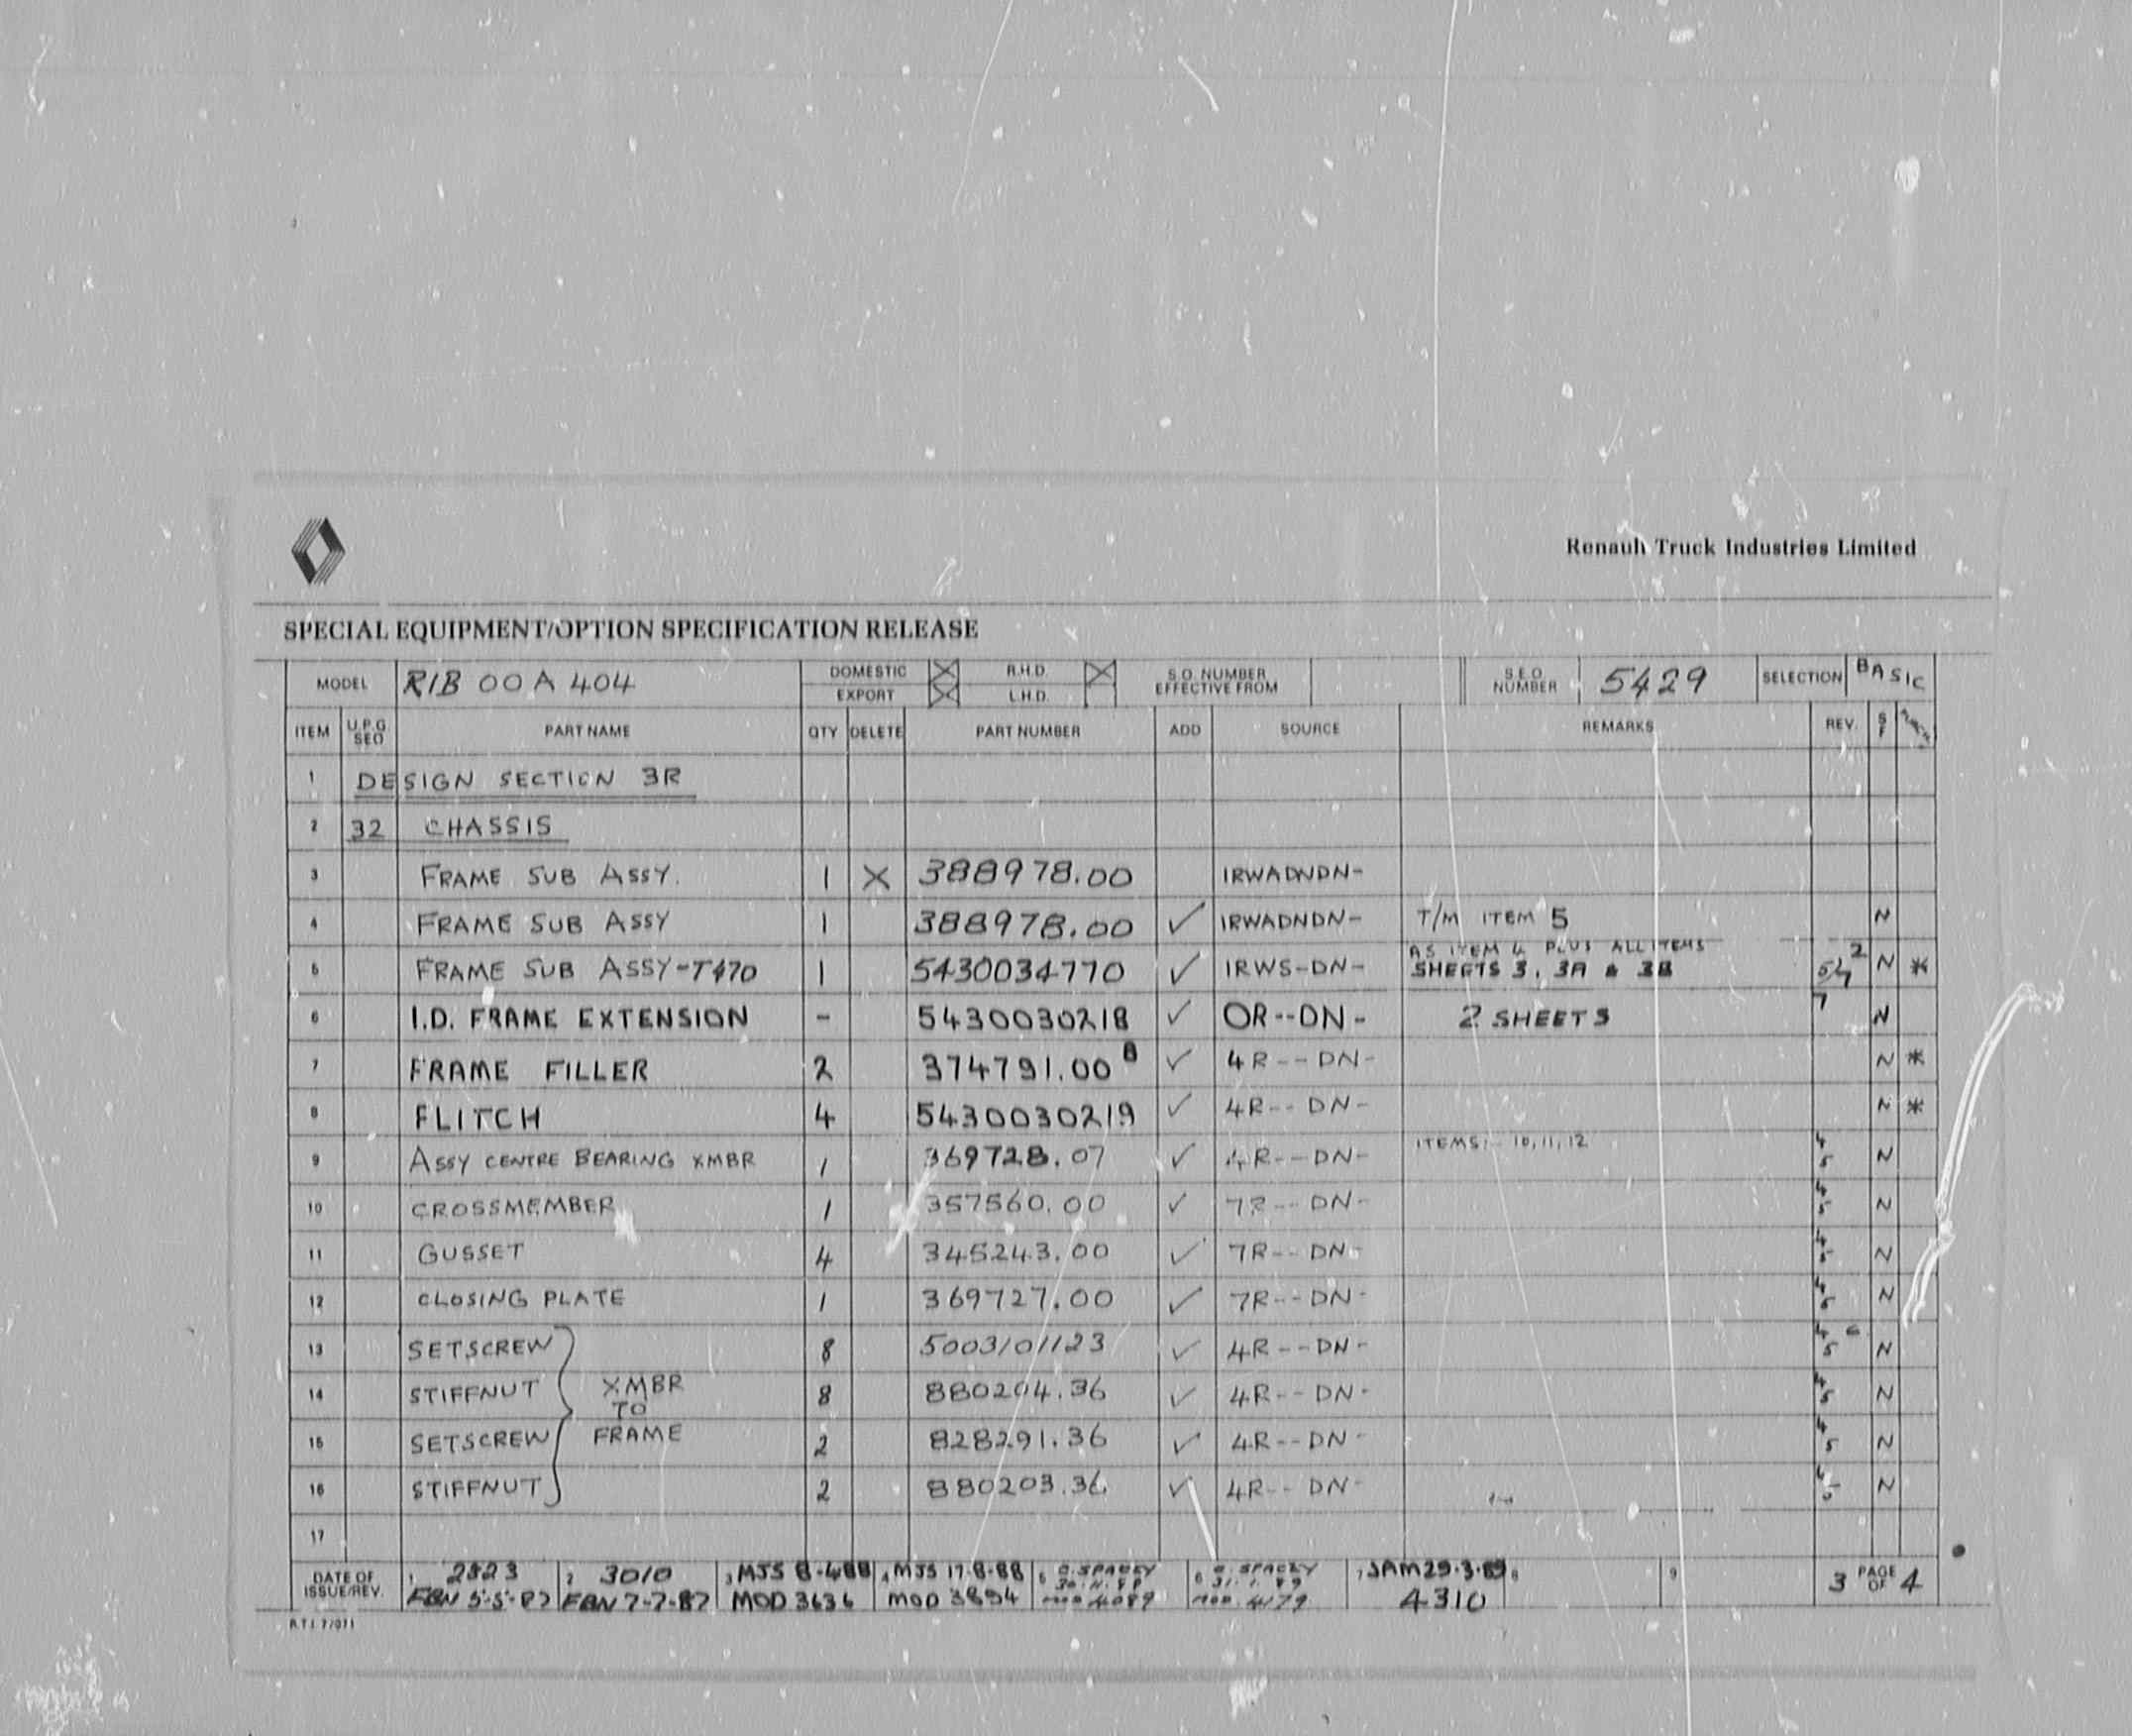 Renault Truck Industries Limited
SPECIAL EQUIPMENT/OPTION SPECIFICATION RELEASE
MODEL RIB 00 A 404 DOMESTIC R.H.D. S.O. NUMBER EFFECTIVE FROM S.E.O. NUMBER 5429 SELECTION BASIC
EXPORT L.H.D.
ITEM U.P.G SEQ PART NAME QTY DELETE PART NUMBER ADD SOURCE REMARKS REV. S F
1 DESIGN SECTION 3R
2 32 CHASSIS
3 FRAME SUB ASSY. 1 X 388978.00 1RWADNDN-
4 FRAME SUB ASSY 1 388978.00 ✓ 1RWADNDN- T/M ITEM 5 N
5 FRAME SUB ASSY-T470 1 5430034770 ✓ 1RWS-DN- AS ITEM 4 PLUS ALL ITEMS SHEETS 3, 3A & 3B 2 N *
6 I.D. FRAME EXTENSION - 5430030218 ✓ OR--DN- 2 SHEETS 7 N
7 FRAME FILLER 2 374791.00 B ✓ 4R---DN- N *
8 FLITCH 4 5430030219 ✓ 4R--DN- N *
9 ASSY CENTRE BEARING XMBR 1 369728.07 ✓ 4R---DN- ITEMS:- 10, 11, 12 4 5 N
10 CROSSMEMBER 1 357560.00 ✓ 7R---DN- 4 5 N
11 GUSSET 4 345243.00 ✓ 7R---DN- 4 5 N
12 CLOSING PLATE 1 369727.00 ✓ 7R---DN- 4 5 N
13 SETSCREW 8 5003101123 ✓ 4R---DN- 4 5 6 N
14 STIFFNUT XMBR TO 8 880204.36 ✓ 4R---DN- 4 5 N
15 SETSCREW FRAME 2 828291.36 ✓ 4R---DN- 4 5 N
16 STIFFNUT 2 880203.36 ✓ 4R---DN- 4 5 N
17
DATE OF ISSUE/REV. 1 2823 2 3010 3 MJS 8-4-88 4 MJS 17-8-88 5 C. SPACEY 6 C. SPACEY 7 JAM 29-3-89 8 9 3 PAGE OF 4
FBN 5-5-87 FBN 7-7-87 MOD 3636 MOD 3894 30.11.88 MOD 4089 31.1.89 MOD 4179 4310
R.T.I. 7/071